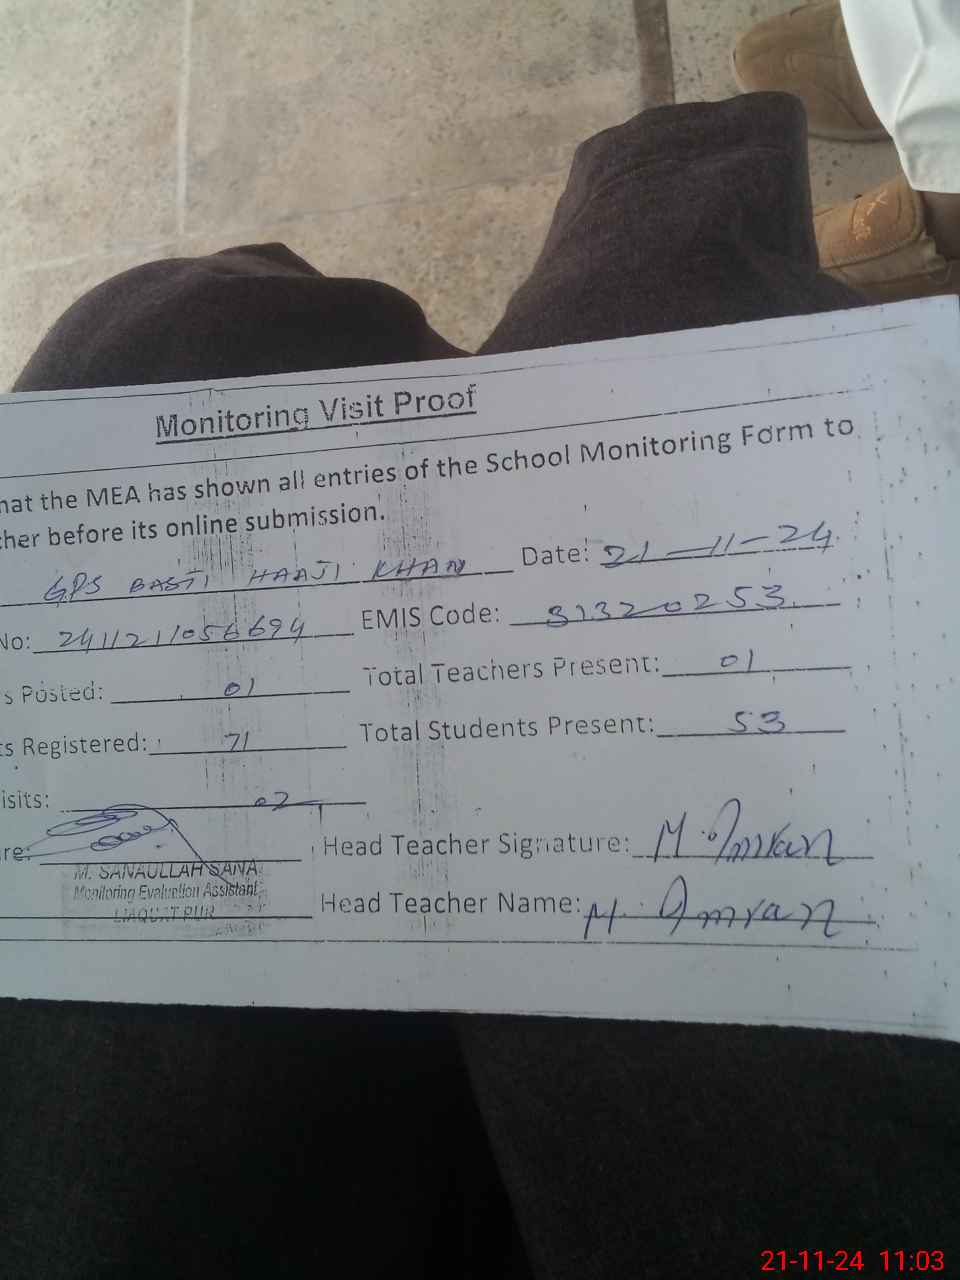 Monitoring Visit Proof
hat the MEA has shown all entries of the School Monitoring Form to
cher before its online submission.
GPS BASTI HAAJI KHAN Date: 21-11-24
No: 241121105 6694 EMIS Code: 31320253
s Posted: 01 Total Teachers Present: 01
ts Registered: 71 Total Students Present: 53
isits: 02
re: Head Teacher Signature: M. Imran
M. SANAULLAH SANA
Monitoring Evaluation Assistant
LIAQUATPUR
Head Teacher Name: M. Imran
21-11-24 11:03